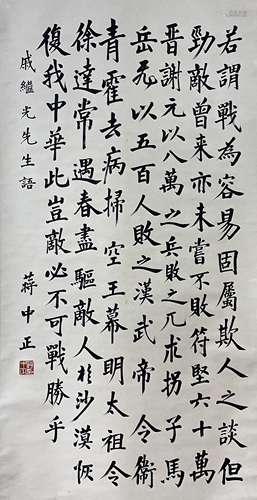 若謂戰為容易固屬欺人之談但
勁敵曾来亦未嘗不敗符堅六十萬
晉謝元以八萬之兵敗之兀求拐子馬
岳飛以五百人敗之漢武帝令衞
青霍去病掃空王幕明太祖令
徐達常遇春盡驅敵人於沙漠恢
復我中華此豈敵必不可戰勝乎
戚繼光先生語
蔣中正